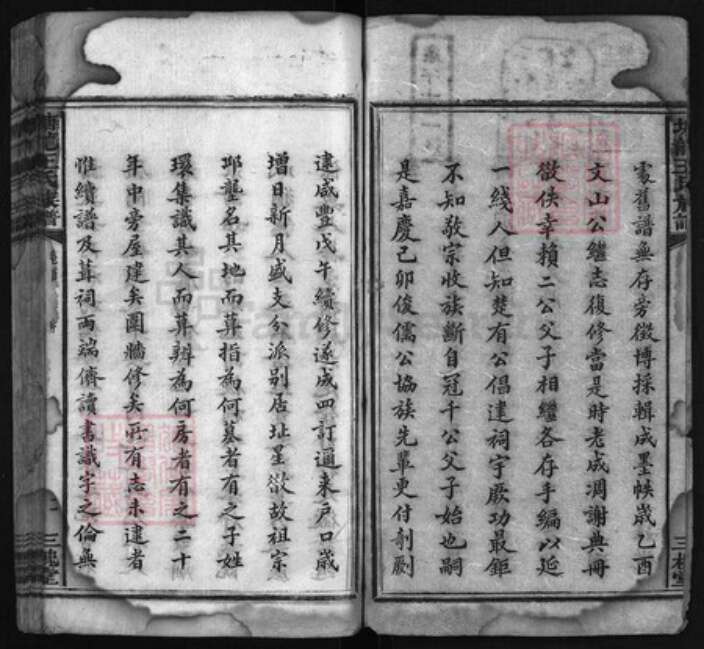 處舊譜無存旁徵博採輯成墨帙歲乙酉
文山公繼志復修當是時老成凋謝典冊
微佚幸賴二公父子相繼各存手編以延
一綫人但知楚有公倡建祠宇厥功最鉅
不知敬宗收族斷自冠千公父子始也嗣
是嘉慶己卯俊儒公協族先輩更付剞劂
逮咸豐戊午續修遂成四訂邇來戶口歲
增日新月盛支分派別居址星欲故祖宗
邱壟名其地而葬指為何墓者有之子姓
環集識其人而葬辨為何房者有之二十
年中旁屋建矣圍牆修矣所有志未逮者
惟續譜及葺祠兩端儕讀書識字之倫無
王氏族譜
三槐堂